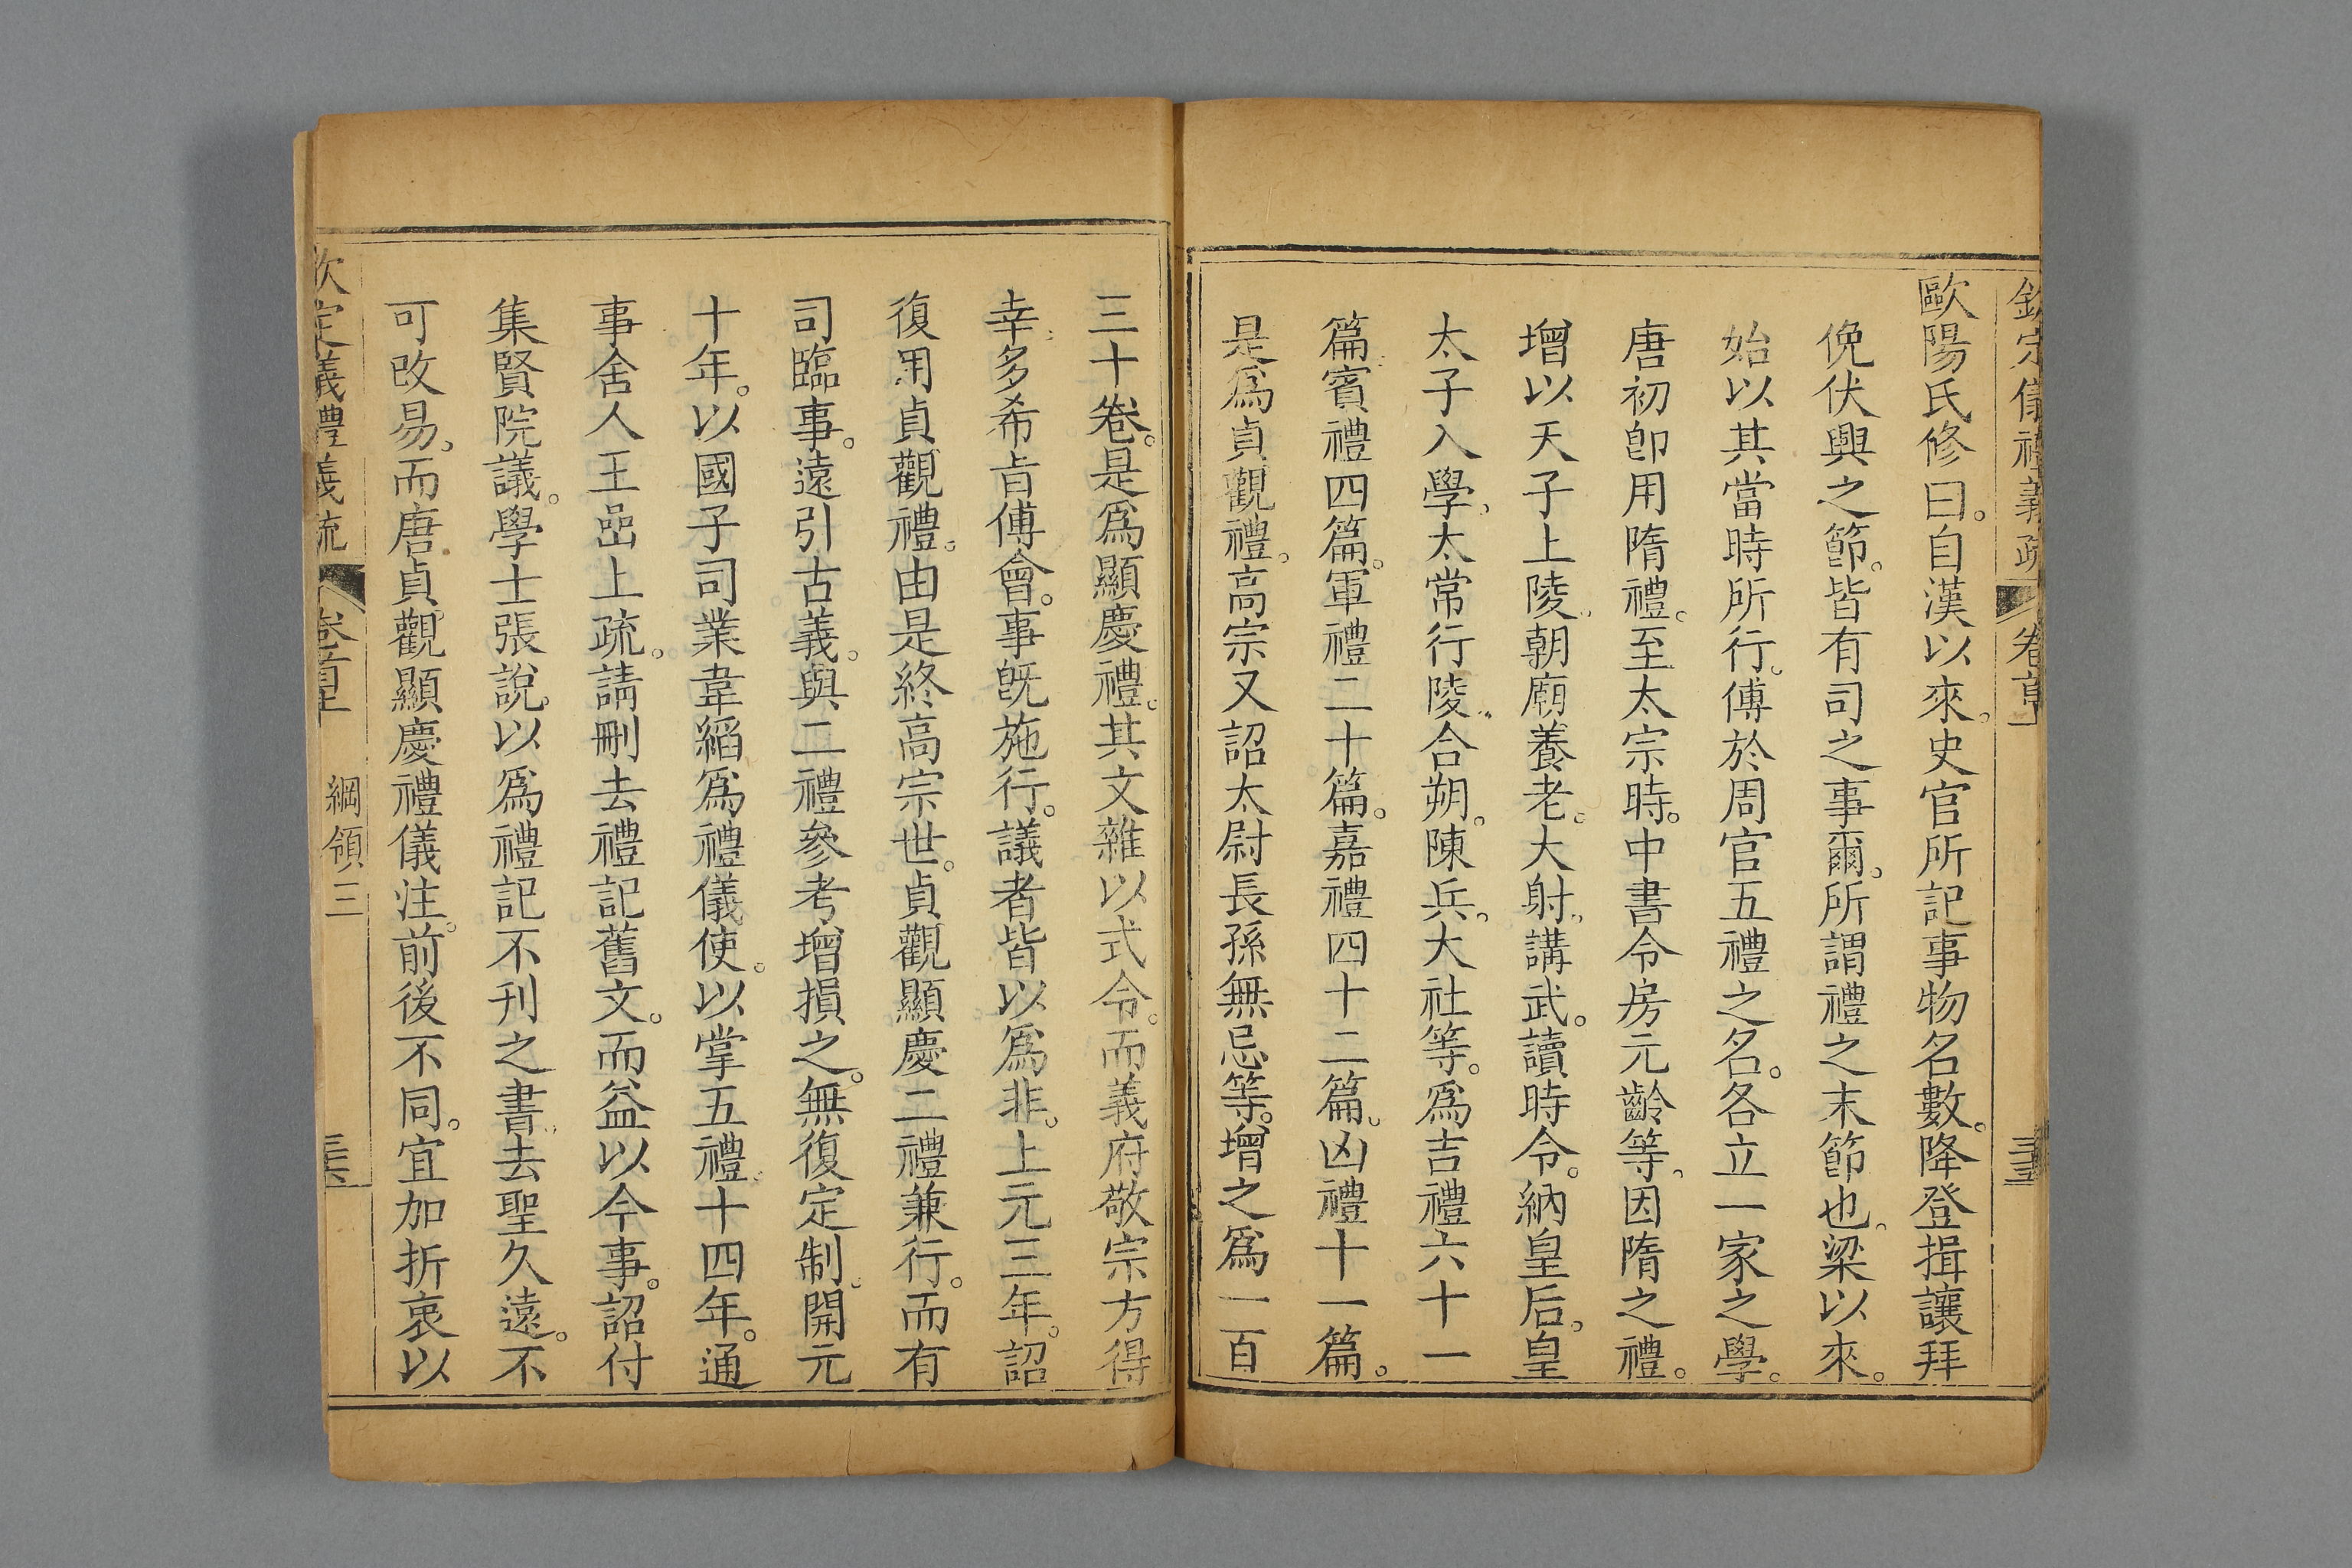 欽定儀禮義疏 卷首上
歐陽氏修曰。自漢以來。史官所記事物名數。降登揖讓拜
俛伏興之節。皆有司之事爾。所謂禮之末節也。梁以來。
始以其當時所行。傅於周官五禮之名。各立一家之學。
唐初卽用隋禮。至太宗時。中書令房元齡等。因隋之禮。
增以天子上陵。朝廟養老。大射。講武。讀時令。納皇后。皇
太子入學。太常行陵。合朔。陳兵。大社等。爲吉禮六十一
篇。賓禮四篇。軍禮二十篇。嘉禮四十二篇。凶禮十一篇。
是爲貞觀禮。高宗又詔太尉長孫無忌等。增之爲一百
三十卷。是爲顯慶禮。其文雜以式令。而義府敬宗方得
幸。多希旨傅會。事旣施行。議者皆以爲非。上元三年。詔
復用貞觀禮。由是終高宗世。貞觀顯慶二禮兼行。而有
司臨事。遠引古義。與二禮參考增損之。無復定制。開元
十年。以國子司業韋縚爲禮儀使。以掌五禮。十四年。通
事舍人王嵒上疏。請刪去禮記舊文。而益以今事。詔付
集賢院議。學士張說。以爲禮記不刊之書。去聖久遠。不
可改易。而唐貞觀顯慶禮儀注。前後不同。宜加折衷以
欽定儀禮義疏 卷首上 綱領三